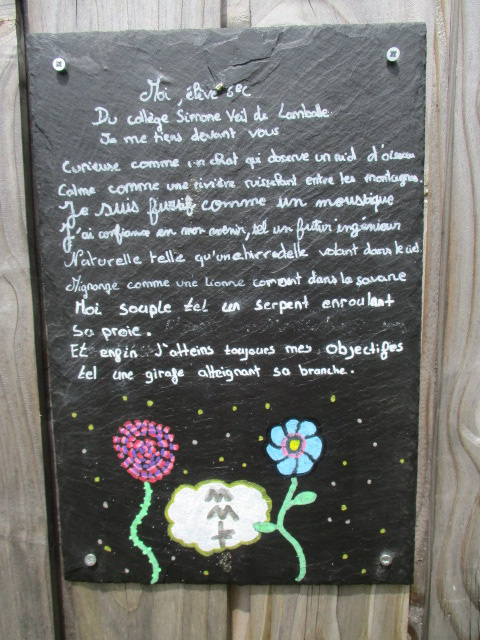 Moi, élève 6eC
Du collège Simone Veil de Lamballe
Je me tiens devant vous
Curieuse comme un chat qui observe un nid d'oiseau
Calme comme une rivière ruisselant entre les montagnes.
Je suis furtif comme un moustique
J'ai confiance en mon avenir, tel un futur ingénieur
Naturelle telle qu'une hirondelle volant dans le ciel.
comme une lionne courant dans la savane
Moi souple tel un serpent enroulant
sa proie.
Et enfin J'atteins toujours mes objectifs
tel une girafe atteignant sa branche.
MMT